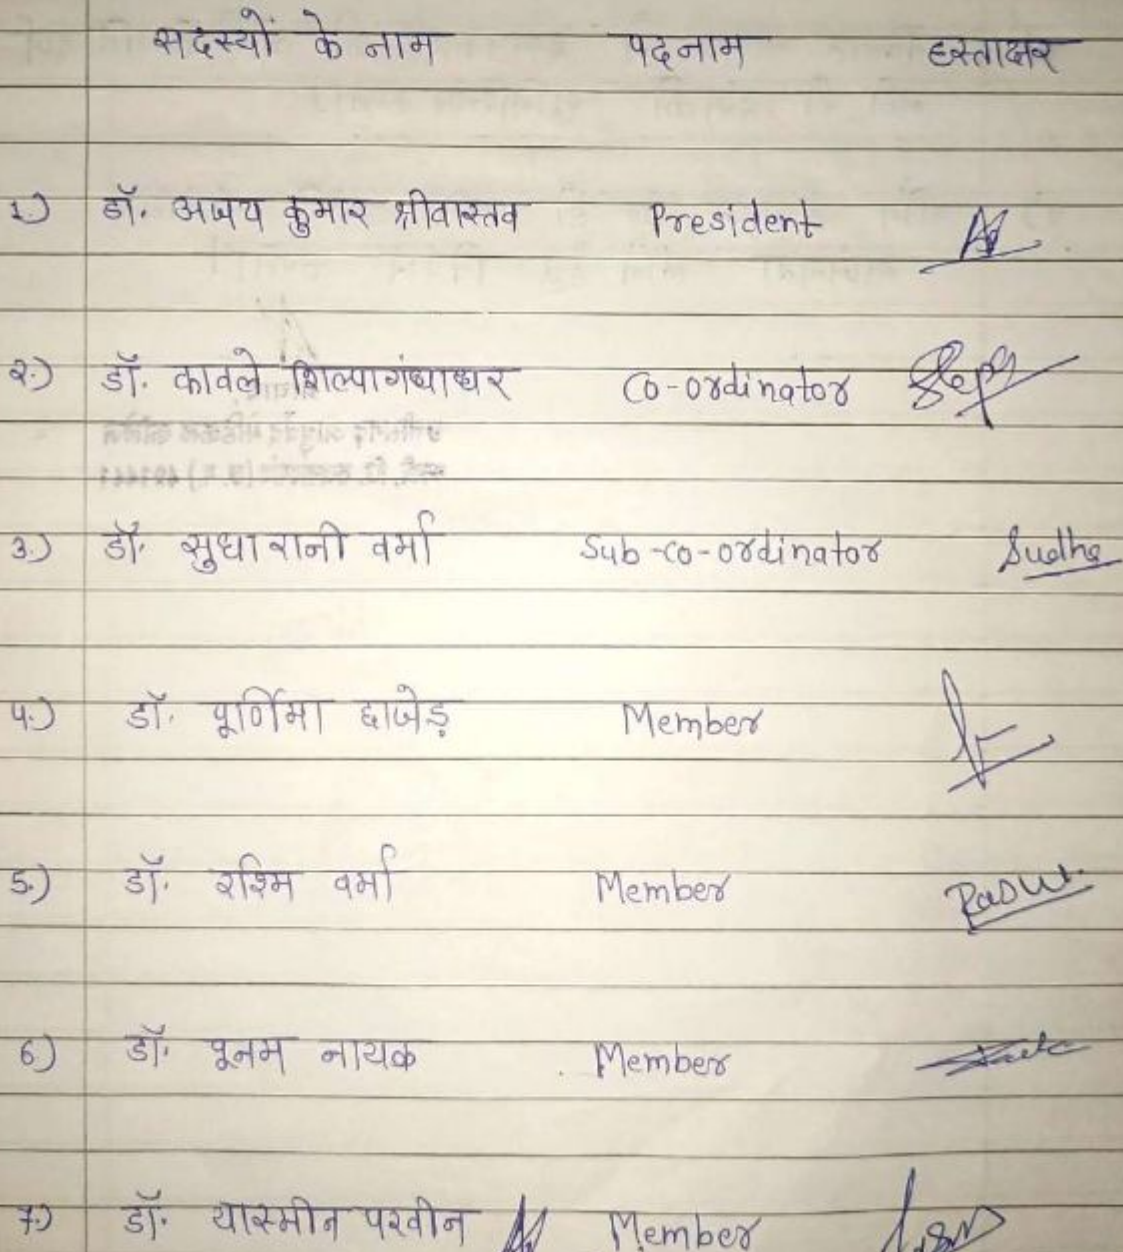 सदस्यों के नाम पदनाम हस्ताक्षर
1) डॉ. अजय कुमार श्रीवास्तव President
2.) डॉ. कावले शिल्पागंगाधर Co-ordinator
3.) डॉ. सुधा रानी वर्मा Sub-co-ordinator Sudha
4.) डॉ. पूर्णिमा छाजेड़ Member
5.) डॉ. रश्मि वर्मा Member
6) डॉ. पूनम नायक Member
7.) डॉ. यास्मीन परवीन Member